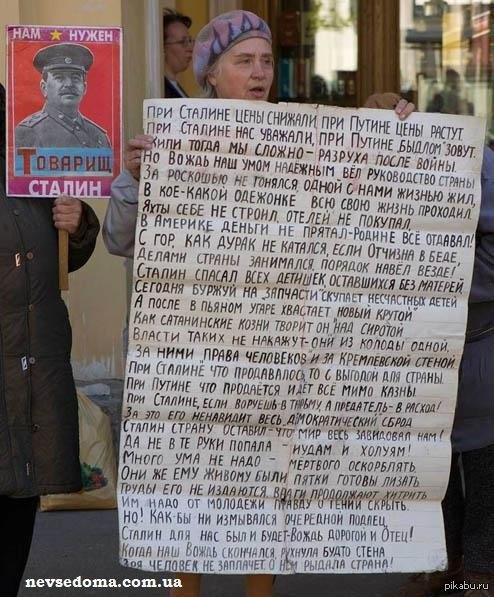 НАМ НУЖЕН
ТОВАРИЩ
СТАЛИН
ПРИ СТАЛИНЕ ЦЕНЫ СНИЖАЛИ, ПРИ ПУТИНЕ ЦЕНЫ РАСТУТ
ПРИ СТАЛИНЕ НАС УВАЖАЛИ, ПРИ ПУТИНЕ БЫДЛОМ ЗОВУТ.
ЖИЛИ ТОГДА МЫ СЛОЖНО - РАЗРУХА ПОСЛЕ ВОЙНЫ.
НО ВОЖДЬ НАШ УМОМ НАДЁЖНЫМ ВЁЛ РУКОВОДСТВО СТРАНЫ
ЗА РОСКОШЬЮ НЕ ГОНЯЛСЯ, ОДНОЙ С НАМИ ЖИЗНЬЮ ЖИЛ,
В КОЕ-КАКОЙ ОДЕЖОНКЕ ВСЮ СВОЮ ЖИЗНЬ ПРОХОДИЛ.
ЯХТЫ СЕБЕ НЕ СТРОИЛ, ОТЕЛЕЙ НЕ ПОКУПАЛ,
В АМЕРИКЕ ДЕНЬГИ НЕ ПРЯТАЛ - РОДИНЕ ВСЁ ОТДАВАЛ!
С ГОР, КАК ДУРАК НЕ КАТАЛСЯ, ЕСЛИ ОТЧИЗНА В БЕДЕ,
ДЕЛАМИ СТРАНЫ ЗАНИМАЛСЯ, ПОРЯДОК НАВЁЛ ВЕЗДЕ!
СТАЛИН СПАСАЛ ВСЕХ ДЕТИШЕК, ОСТАВШИХСЯ БЕЗ МАТЕРЕЙ.
СЕГОДНЯ БУРЖУЙ НА "ЗАПЧАСТИ" СКУПАЕТ НЕСЧАСТНЫХ ДЕТЕЙ
А ПОСЛЕ В ПЬЯНОМ УГАРЕ ХВАСТАЕТ "НОВЫЙ КРУТОЙ"
КАК САТАНИНСКИЕ КОЗНИ ТВОРИТ ОН НАД СИРОТОЙ
ВЛАСТИ ТАКИХ НЕ НАКАЖУТ - ОНИ ИЗ КОЛОДЫ ОДНОЙ.
ЗА НИМИ "ПРАВА ЧЕЛОВЕКОВ" И ЗА КРЕМЛЕВСКОЙ СТЕНОЙ.
ПРИ СТАЛИНЕ ЧТО ПРОДАВАЛОСЬ, ТО С ВЫГОДОЙ ДЛЯ СТРАНЫ.
ПРИ ПУТИНЕ ЧТО ПРОДАЁТСЯ ИДЁТ ВСЁ МИМО КАЗНЫ.
ПРИ СТАЛИНЕ, ЕСЛИ ВОРУЕШЬ В ТЮРЬМУ, А ПРЕДАТЕЛЬ - В РАСХОД!
ЗА ЭТО ЕГО НЕНАВИДИТ ВЕСЬ ДЕМОКРАТИЧЕСКИЙ СБРОД
СТАЛИН СТРАНУ ОСТАВИЛ - ЧТО МИР ВЕСЬ ЗАВИДОВАЛ НАМ!
ДА НЕ В ТЕ РУКИ ПОПАЛА - ИУДАМ И ХОЛУЯМ!
МНОГО УМА НЕ НАДО - МЕРТВОГО ОСКОРБЛЯТЬ.
ОНИ ЖЕ ЕМУ ЖИВОМУ БЫЛИ ПЯТКИ ГОТОВЫ ЛИЗАТЬ
ТРУДЫ ЕГО НЕ ИЗДАЮТСЯ, ВРАГИ ПРОДОЛЖАЮТ ХИТРИТЬ
ИМ НАДО ОТ МОЛОДЕЖИ ПРАВДУ О ГЕНИИ СКРЫТЬ.
НО! КАК-БЫ НИ ИЗМЫВАЛСЯ ОЧЕРЕДНОЙ ПОДЛЕЦ
СТАЛИН ДЛЯ НАС БЫЛ И БУДЕТ - ВОЖДЬ ДОРОГОЙ И ОТЕЦ!
КОГДА НАШ ВОЖДЬ СКОНЧАЛСЯ, РУХНУЛА БУДТО СТЕНА
ЗРЯ ЧЕЛОВЕК НЕ ЗАПЛАЧЕТ О НЁМ РЫДАЛА СТРАНА!
nevsedoma.com.ua
pikabu.ru